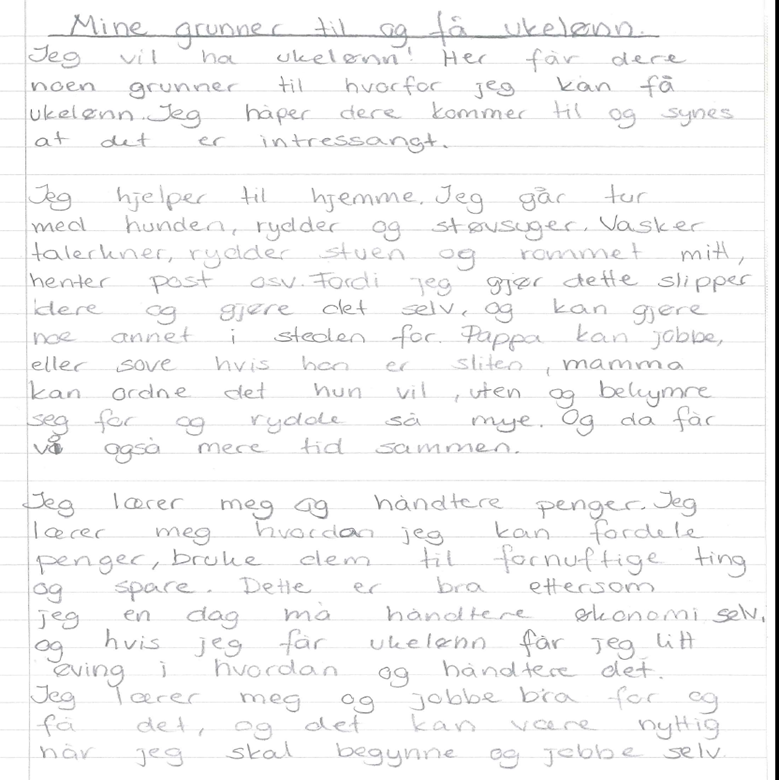 Mine grunner til og få ukelønn.
Jeg vil ha ukelønn! Her får dere
noen grunner til hvorfor jeg kan få
ukelønn. Jeg håper dere kommer til og synes
at det er intressangt.
Jeg hjelper til hjemme. Jeg går tur
med hunden, rydder og støvsuger. Vasker
talerkner, rydder stuen og rommet mitt,
henter post osv. Fordi jeg gjør dette slipper
dere og gjøre det selv, og kan gjøre
noe annet i steden for. Pappa kan jobbe,
eller sove hvis han er sliten, mamma
kan ordne det hun vil, uten og bekymre
seg for og rydde så mye. Og da får
vi også mere tid sammen.
Jeg lærer meg og håndtere penger. Jeg
lærer meg hvordan jeg kan fordele
penger, bruke dem til fornuftige ting
og spare. Dette er bra ettersom
jeg en dag må håndtere økonomi selv,
og hvis jeg får ukelønn får jeg litt
øving i hvordan og håndtere det.
Jeg lærer meg og jobbe bra for og
få det, og det kan være nyttig
når jeg skal begynne og jobbe selv.